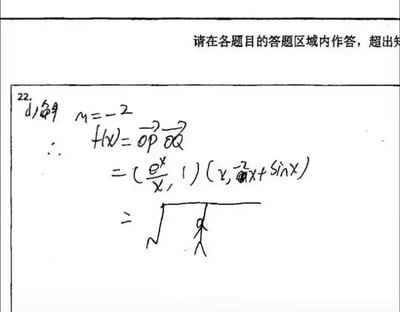 请在各题目的答题区域内作答，超出
22.
(1)解 m=-2
∴ f(x)=\overrightarrow{OP} \overrightarrow{OQ}
=(\frac{e^x}{x}, 1)(x, -2x+sinx)
=√